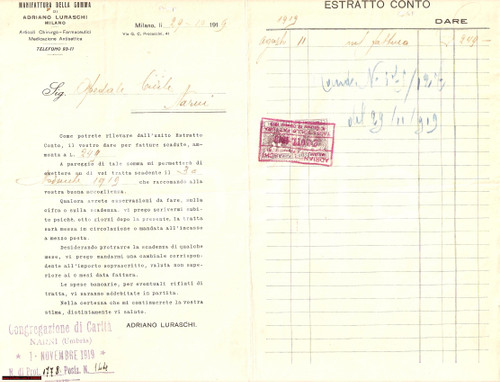 MANIFATTURA DELLA GOMMA
DI
ADRIANO LURASCHI
MILANO
Articoli Chirurgo-Farmaceutici
Medicazione Antisettica
TELEFONO 50-11
Milano, li 29-10 1919
Via G. C. Procaccini, 41
Sig. Ospedale Civile
Narni
Come potrete rilevare dall'unito Estratto
Conto, il vostro dare per fatture scadute, am-
monta a L. 249
A pareggio di tale somma mi permetterò di
emettere su di voi tratta scadente il 30
1919 che raccomando alla
vostra buona accoglienza.
Qualora avreste osservazioni da fare, sulla
cifra o sulla scadenza, vi prego scrivermi subi-
to poichè, otto giorni dopo la presente, la tratta
sarà messa in circolazione o mandata all'incasso
a mezzo posta.
Desiderando protrarre la scadenza di qualche
mese, vi prego mandarmi una cambiale corrispon-
dente all'importo soprascritto, valuta non su-
periore ai 6 mesi data fattura.
Le spese bancarie, per eventuali rifiuti di
tratta, vi saranno addebitate in partita.
Nella certezza che mi continuerete la Vostra
stima, distintamente vi saluto.
ADRIANO LURASCHI.
Congregazione di Carità
NARNI (Umbria)
* 1 - NOVEMBRE 1919 *
N. di Prot. 1778 Posiz. N. 144
ESTRATTO CONTO
1919
DARE
Agosto 11 fattura 249
N.
del 29/11/919
ADRIANO LURASCHI